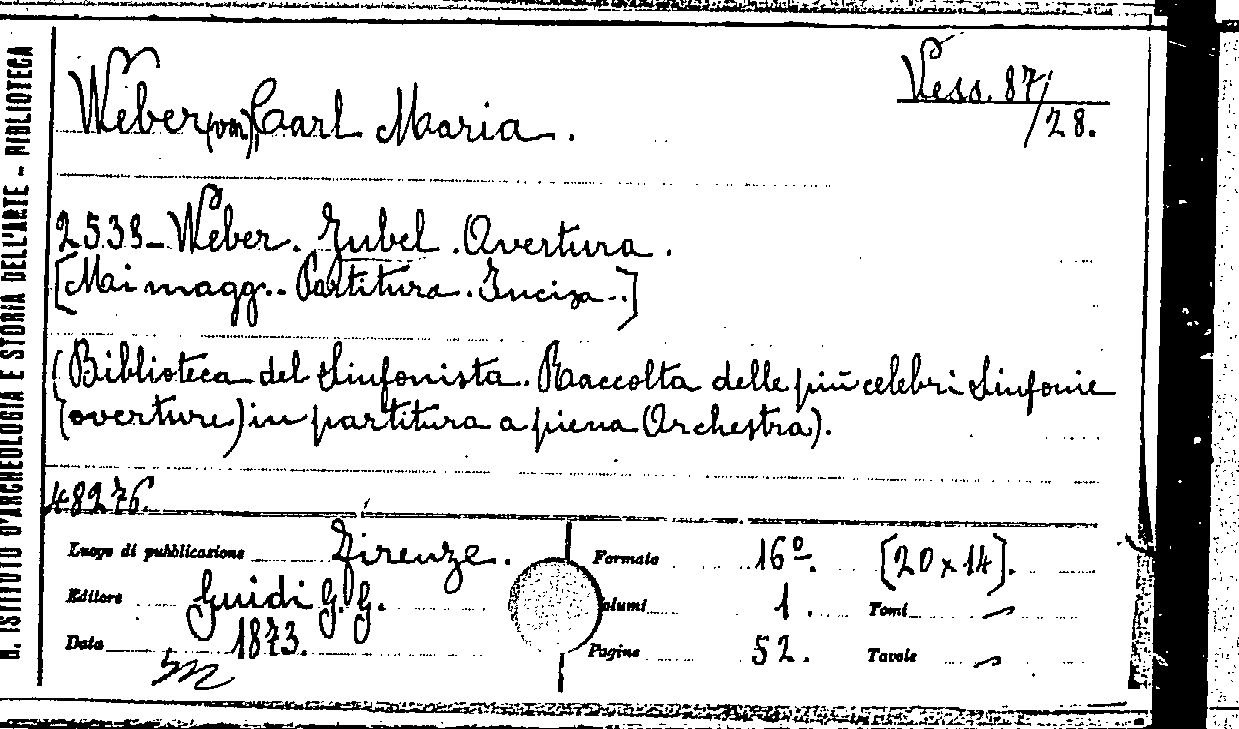 R. ISTITUTO D'ARCHEOLOGIA E STORIA DELL'ARTE - BIBLIOTECA
Weber (von), Carl Maria.
Vess. 87/28.
2533 - Weber. Jubel. Overtura.
[Mi magg. Partitura. Incisa.]
(Biblioteca del Sinfonista. Raccolta delle più celebri Sinfonie
(overture) in partitura a piena Orchestra).
48276.
Luogo di pubblicazione Firenze. Formato 16º. [20 x 14].
Editore Guidi G. G. Volumi 1. Tomi —
Data 1873. Pagine 52. Tavole —